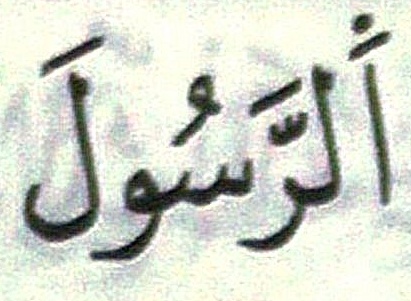 اَ۬لرَّسُولَ